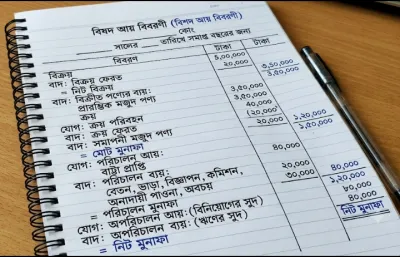 বিষদ আয় বিবরণী (বিশদ আয় বিবরণী)
কোং
সালের ............ তারিখে সমাপ্ত বছরের জন্য
বিবরণ টাকা টাকা
বিক্রয় ৫,০০,০০০
বাদ: বিক্রয় ফেরত ২০,০০০ ৩,৫০,০০০
= নিট বিক্রয় ৩,৫০,০০০
বাদ: বিক্রীত পণ্যের ব্যয়:
প্রারম্ভিক মজুদ পণ্য ৩,৫০,০০০
ক্রয় ৪০,০০০
যোগ: ক্রয় পরিবহন (২০,০০০)
বাদ: ক্রয় ফেরত ২০,০০০ ১,২০,০০০
বাদ: সমাপনী মজুদ পণ্য ১,৫০,০০০
= মোট মুনাফা
যোগ: পরিচালন আয়: ৪০,০০০
বাট্টা প্রাপ্তি
বাদ: পরিচালন ব্যয়: ২০,০০০ ৪০,০০০
বেতন, ভাড়া, বিজ্ঞাপন, কমিশন, ৩০,০০০ ১,২০,০০০
অনাদায়ী পাওনা, অবচয় ৮০,০০০
= পরিচালন মুনাফা ৪০,০০০
যোগ: অপরিচালন আয়: (বিনিয়োগের সুদ) নিট মুনাফা
বাদ: অপরিচালন ব্যয়: (ঋণের সুদ)
= নিট মুনাফা